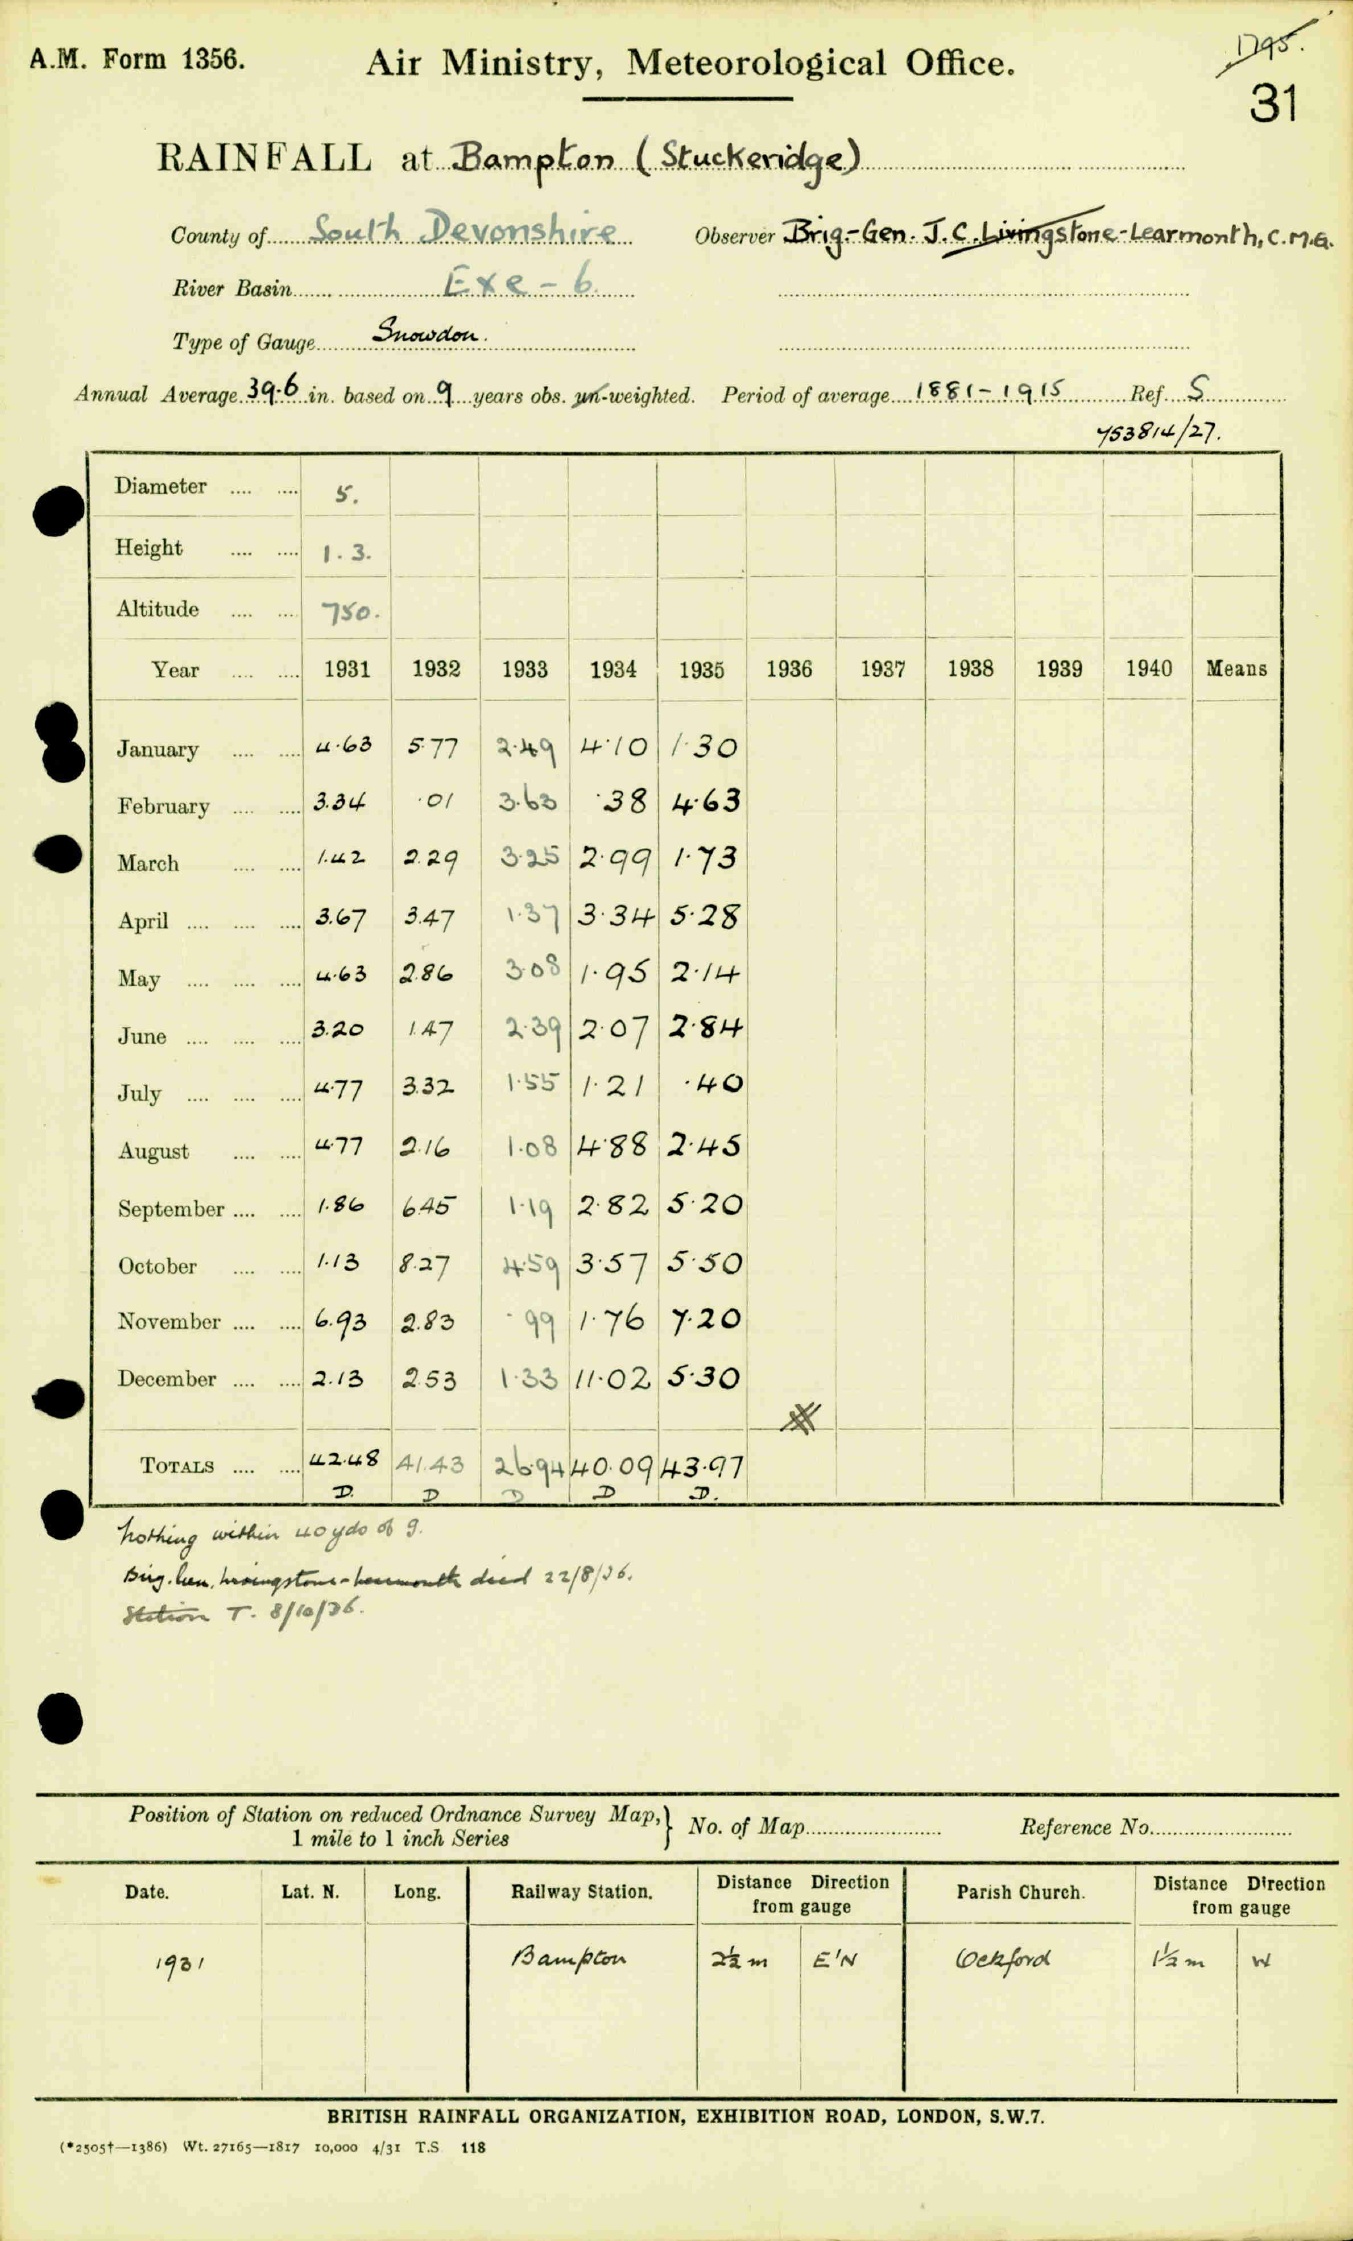 A.M. Form 1356.
Air Ministry, Meteorological Office.
1795.
31
RAINFALL at Bampton (Stuckeridge)
County of South Devonshire Observer Brig.-Gen. J.C. Livingstone-Learmonth, C.M.G.
River Basin Exe - 6
Type of Gauge Snowdon.
Annual Average 39.6 in. based on 9 years obs. un-weighted. Period of average 1881-1915 Ref. S
753814/27.
Diameter .... .... 5.
Height .... .... 1.3.
Altitude .... .... 750.
Year .... .... 1931 1932 1933 1934 1935 1936 1937 1938 1939 1940 Means
January .... .... 4.63 5.77 2.49 4.10 1.30
February .... .... 3.34 .01 3.63 .38 4.63
March .... .... 1.42 2.29 3.25 2.99 1.73
April .... .... .... 3.67 3.47 1.37 3.34 5.28
May .... .... .... 4.63 2.86 3.08 1.95 2.14
June .... .... .... 3.20 1.47 2.39 2.07 2.84
July .... .... .... 4.77 3.32 1.55 1.21 .40
August .... .... 4.77 2.16 1.08 4.88 2.45
September .... .... 1.86 6.45 1.19 2.82 5.20
October .... .... 1.13 8.27 4.59 3.57 5.50
November .... .... 6.93 2.83 .99 1.76 7.20
December .... .... 2.13 2.53 1.33 11.02 5.30
TOTALS .... .... 42.48 41.43 26.94 40.09 43.97
D. D D D D.
Nothing within 40 yds of g.
Brig. Gen. Livingstone-Learmonth died 22/8/36.
Station T. 8/10/36.
Position of Station on reduced Ordnance Survey Map, } No. of Map Reference No.
1 mile to 1 inch Series
Date. Lat. N. Long. Railway Station. Distance Direction from gauge Parish Church. Distance Direction from gauge
1931 Bampton 2½ m E'N Ockford 1½ m W
BRITISH RAINFALL ORGANIZATION, EXHIBITION ROAD, LONDON, S.W.7.
(*2505†—1386) Wt. 27165—1817 10,000 4/31 T.S 118